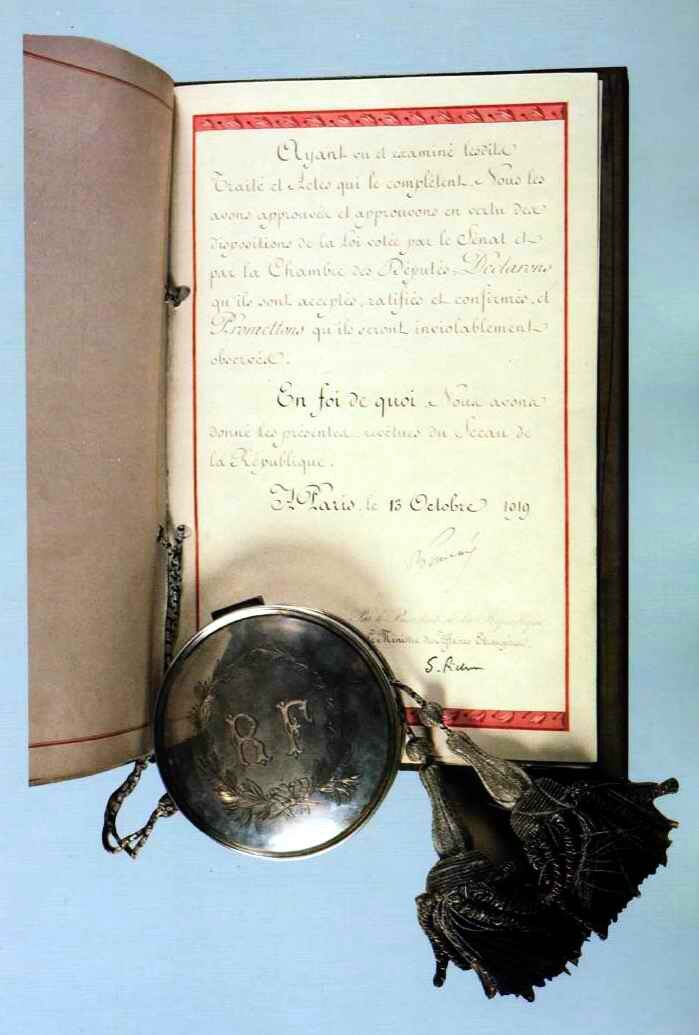 Ayant vu et examiné lesdits
Traité et Actes qui le complètent, Nous les
avons approuvés et approuvons en vertu des
dispositions de la Loi votée par le Sénat et
par la Chambre des Députés, Déclarons
qu'ils sont acceptés, ratifiés et confirmés, et
Promettons qu'ils seront inviolablement
observés.
En foi de quoi, Nous avons
donné les présentes, revêtues du Sceau de
la République.
A Paris, le 13 Octobre 1919
Par le Président de la République,
Le Ministre des Affaires Etrangères,
S. Pichon
R F